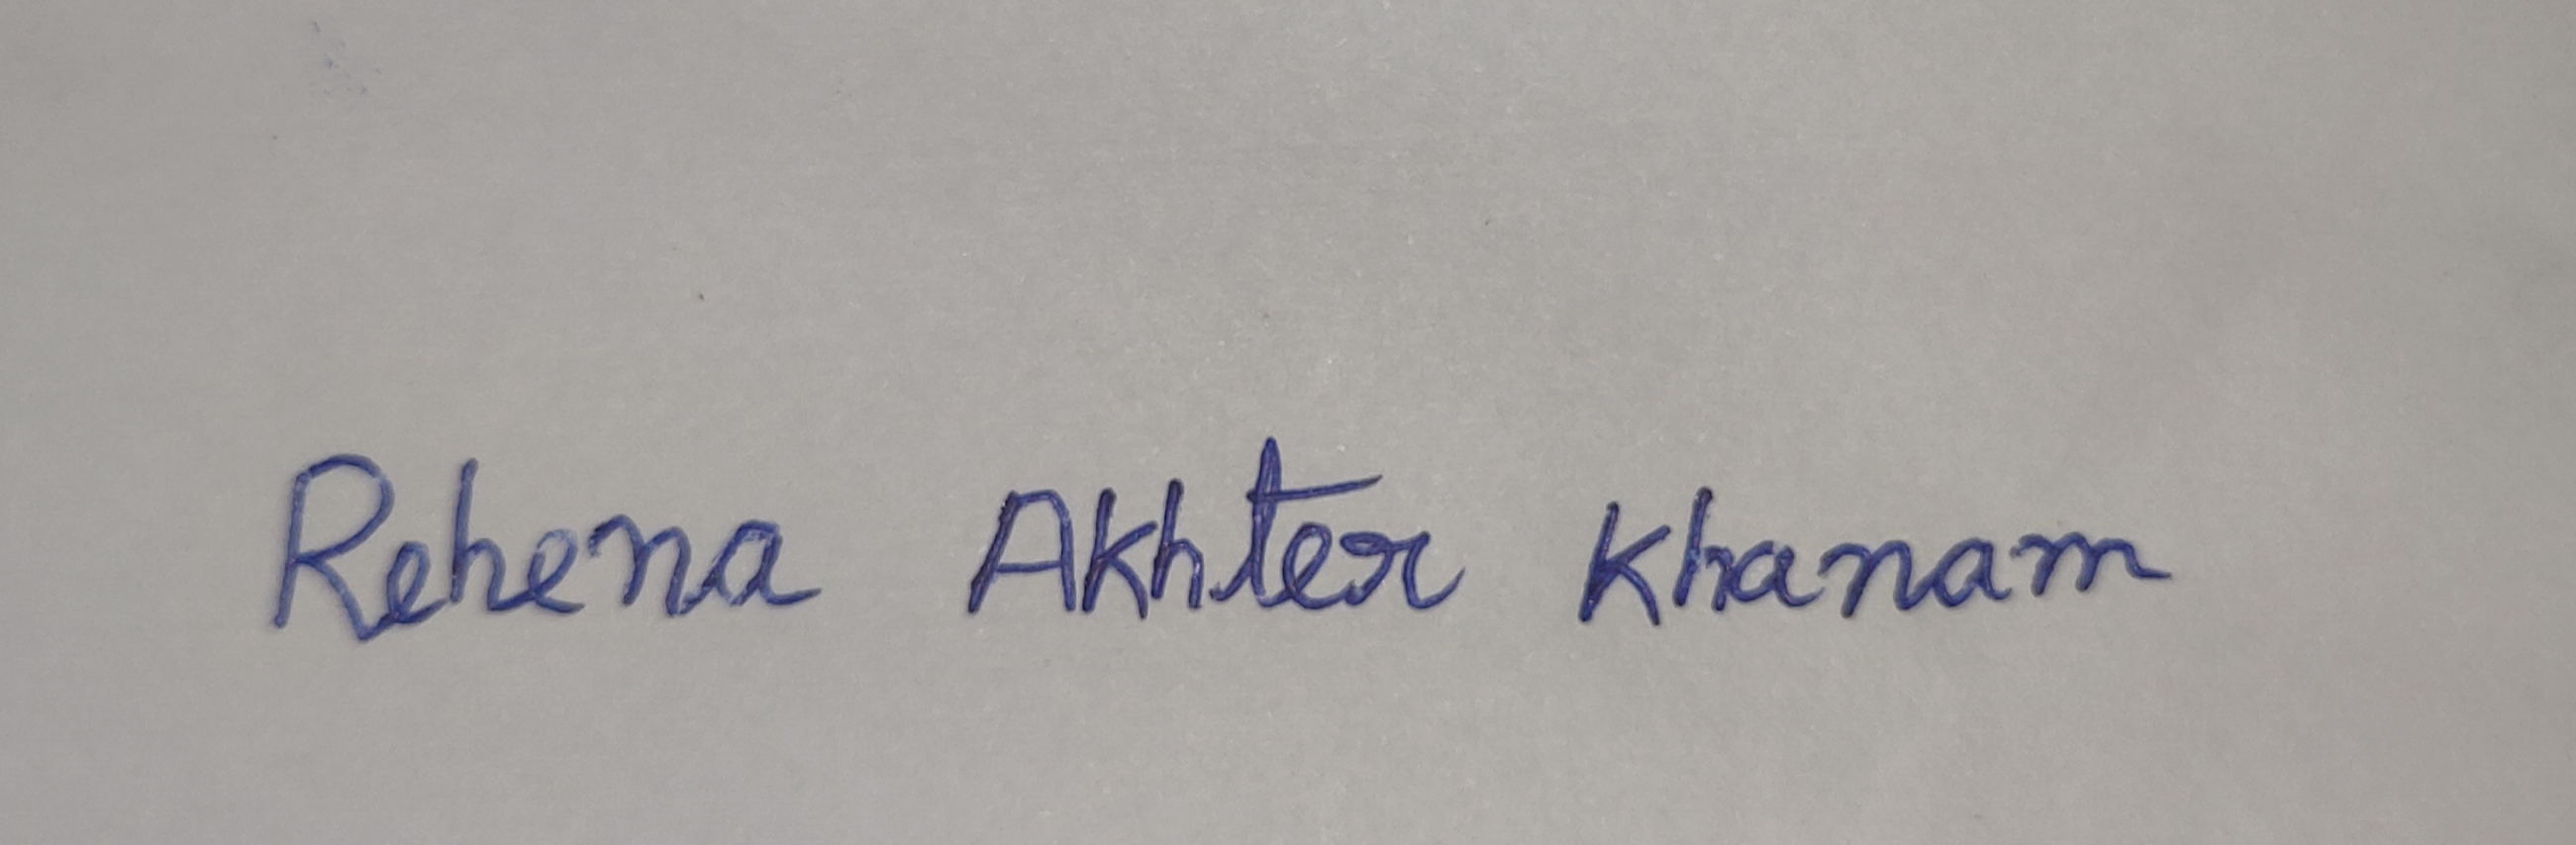 Rehena Akhter Khanam